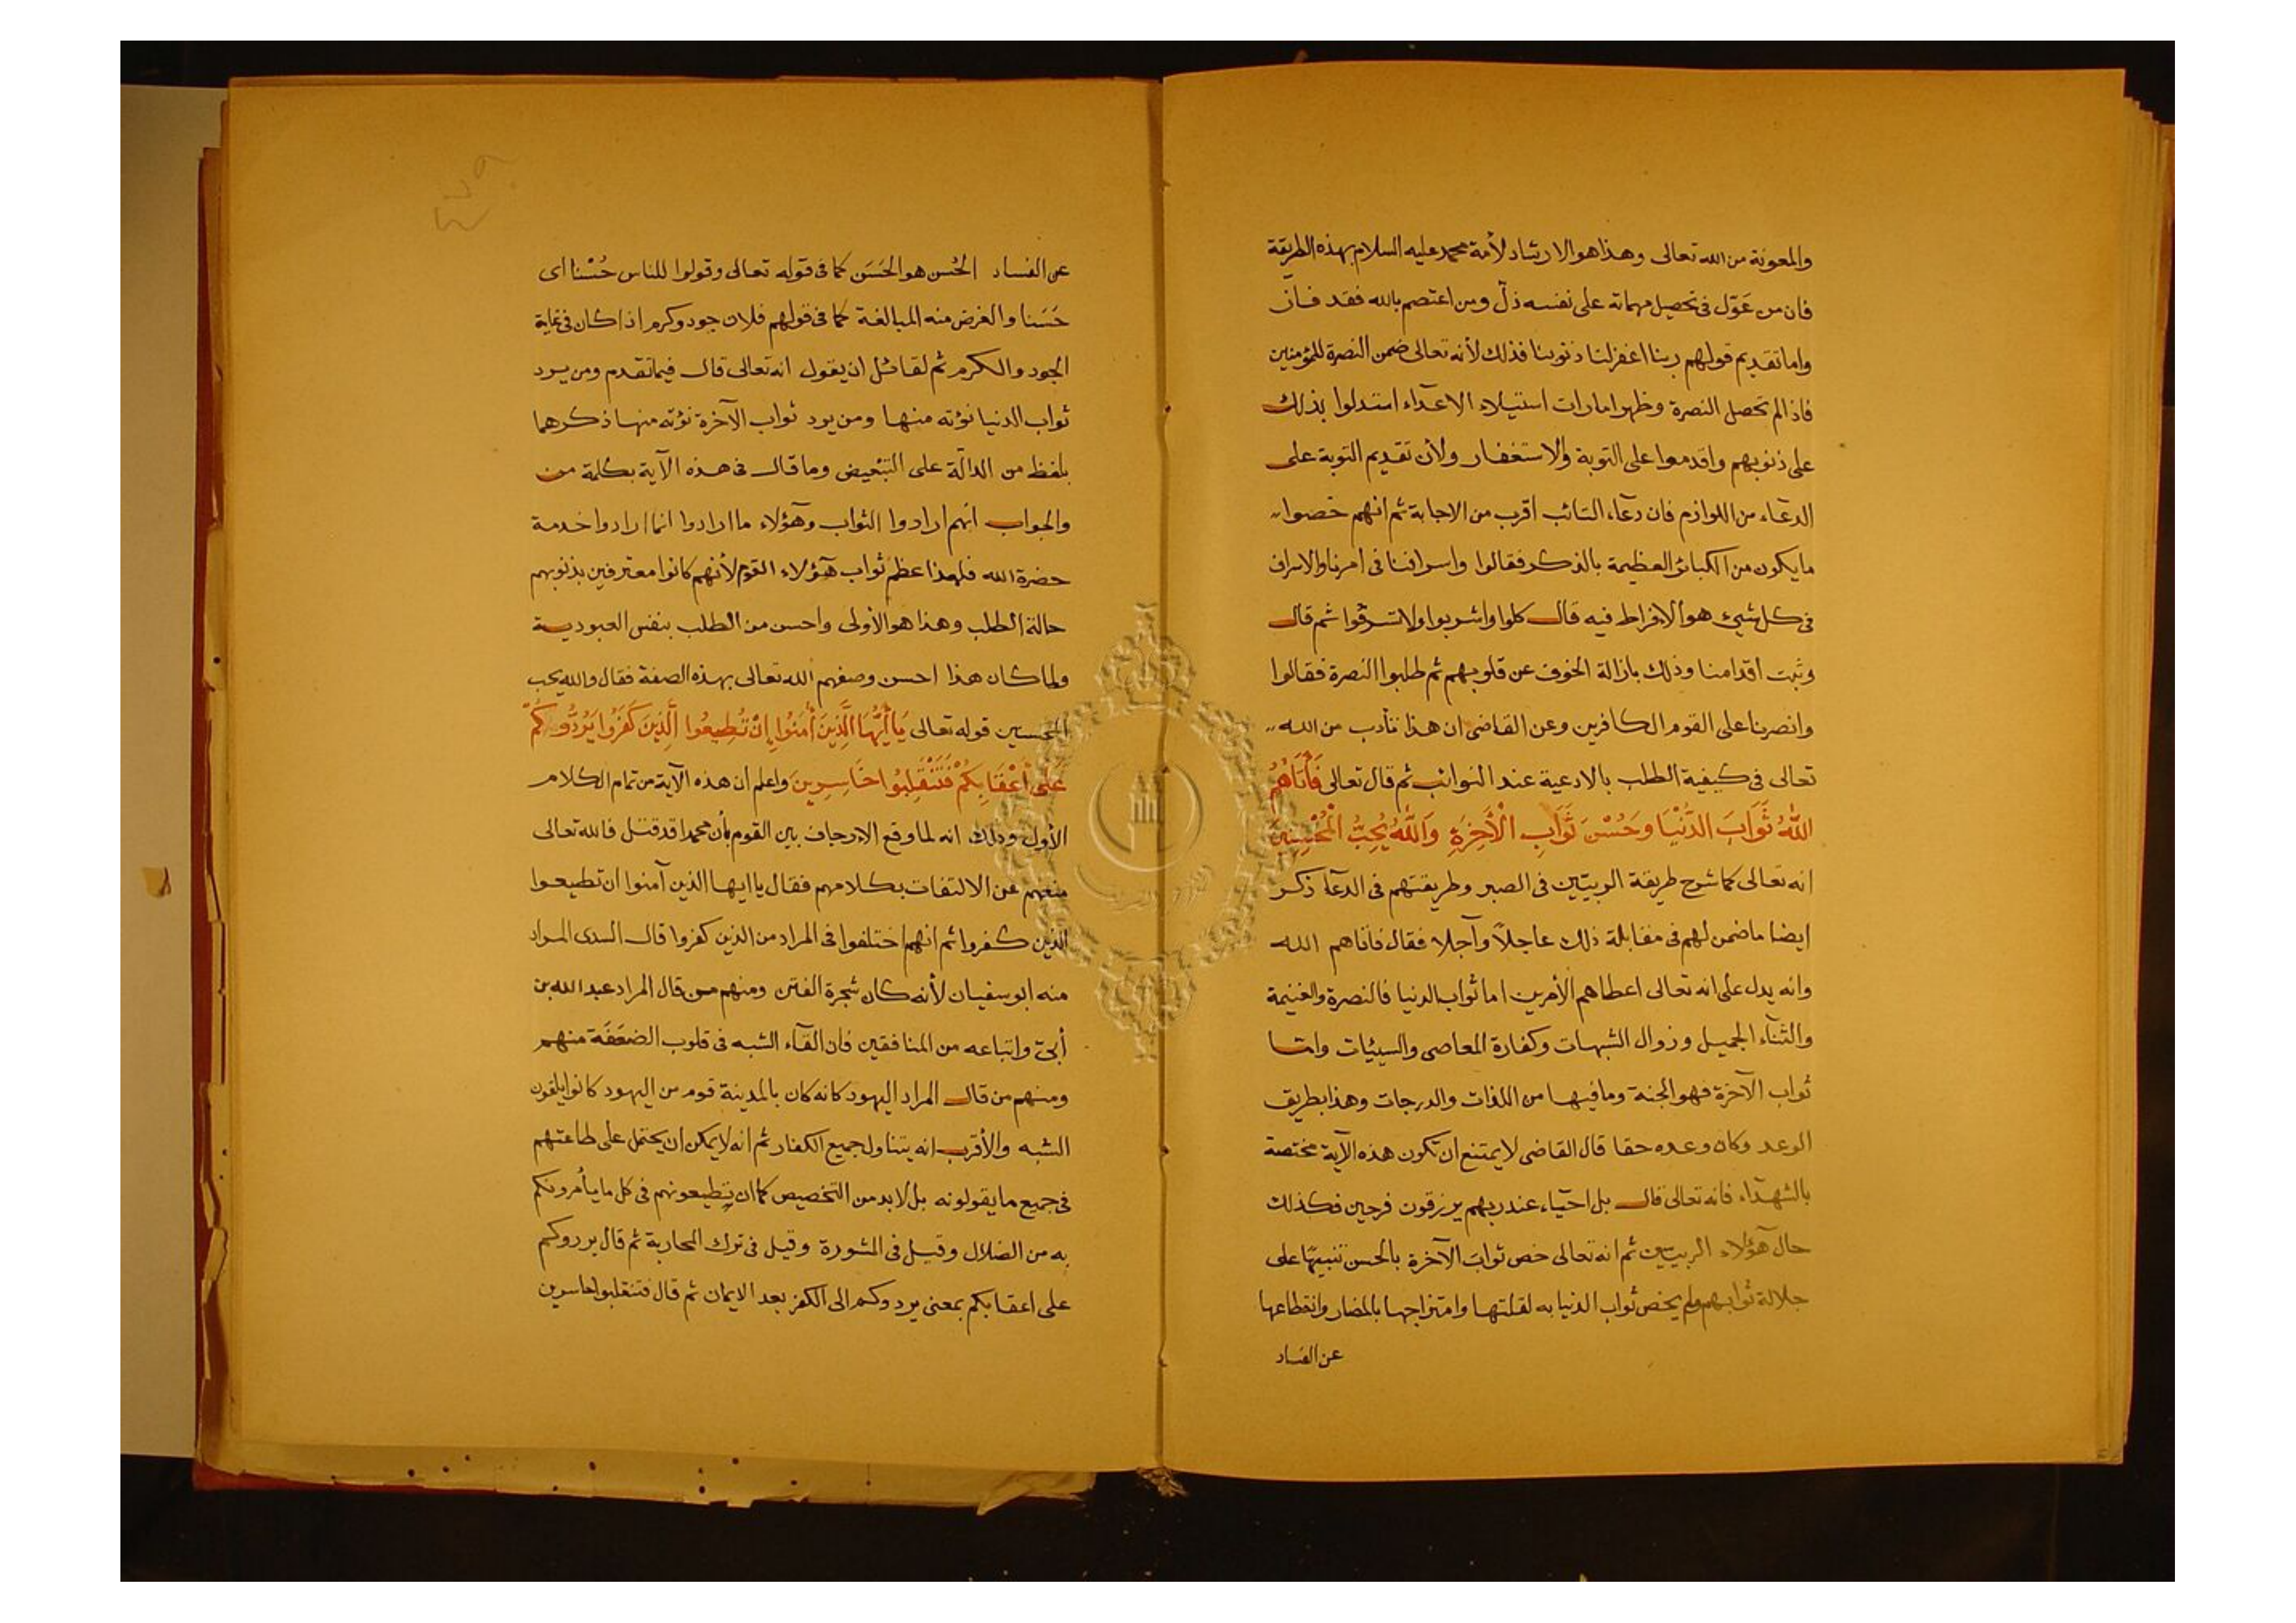 والمعونة من الله تعالى وهذا هو الارشاد لأمة محمد عليه السلام بهذه الطريقة
فان من عَوّل فى تحصيل مهماته على نفسه ذلّ ومن اعتصم بالله فقد فاز
واما تقديم قولهم ربنا اغفر لنا ذنوبنا فذلك لأنه تعالى ضمن النصرة للمؤمنين
فاذا لم تحصل النصرة وظهر امارات استيلاء الاعداء استدلوا بذلك
على ذنوبهم واقدموا على التوبة والاستغفار ولأن تقديم التوبة على
الدعاء من اللوازم فان دعاء التائب أقرب من الاجابة ثم انهم خصوا
ما يكون من الكبائر العظيمة بالذكر فقالوا واسرافنا فى امرنا والاسراف
فى كل شيئ هو الافراط فيه قال كلوا واشربوا ولا تسرفوا ثم قال
وثبت اقدامنا وذلك بازالة الخوف عن قلوبهم ثم طلبوا النصرة فقالوا
وانصرنا على القوم الكافرين وعن القاضى ان هذا تأدب من الله
تعالى فى كيفية الطلب بالادعية عند النوائب ثم قال تعالى فَأٰتَاهُمُ
اللّٰهُ ثَوَابَ الدُّنْيَا وَحُسْنَ ثَوَابِ الْأٰخِرَةِ وَاللّٰهُ يُحِبُّ الْمُحْسِنِينَ
انه تعالى كما شرح طريقة الربيّين فى الصبر وطريقتهم فى الدعآء ذكر
ايضا ما ضمن لهم فى مقابلة ذلك عاجلاً وآجلا فقال فأتاهم الله
وانه يدل على انه تعالى اعطاهم الأمرين اما ثواب الدنيا فالنصرة والغنيمة
والثناء الجميل وزوال الشبهات وكفارة المعاصى والسيئات واما
ثواب الآخرة فهو الجنة وما فيها من اللذات والدرجات وهذا بطريق
الوعد وكان وعده حقا قال القاضى لا يمتنع ان تكون هذه الآية مختصة
بالشهداء فانه تعالى قال بل احياء عند ربهم يرزقون فرحين فكذلك
حال هؤلاء الربيين ثم انه تعالى خص ثواب الآخرة بالحسن تنبيها على
جلالة ثوابهم ولم يخص ثواب الدنيا به لقلتها وامتزاجها بالمضار وانقطاعها
عن الفساد
عن الفساد الحُسن هو الحَسَن كما فى قوله تعالى وقولوا للناس حُسْنا اى
حَسَنا والغرض منه المبالغة كما فى قولهم فلان جود وكرم اذا كان فى غاية
الجود والكرم ثم لقائل ان يقول انه تعالى قال فيما تقدم ومن يرد
ثواب الدنيا نؤته منها ومن يرد ثواب الآخرة نؤته منها ذكرهما
بلفظ من الدالّة على التبعيض وما قال فى هذه الآية بكلمة من
والجواب انهم ارادوا الثواب وهؤلاء ما ارادوا انما ارادوا خدمة
حضرة الله فلهذا عظم ثواب هؤلاء القوم لأنهم كانوا معترفين بذنوبهم
حالة الطلب وهذا هو الأولى واحسن من الطلب بنفس العبودية
ولما كان هذا احسن وصفهم الله تعالى بهذه الصفة فقال والله يحب
المحسنين قوله تعالى يَا أَيُّهَا الَّذِينَ أٰمَنُوا إِنْ تُطِيعُوا الَّذِينَ كَفَرُوا يَرُدُّوكُمْ
عَلَى أَعْقَابِكُمْ فَتَنْقَلِبُوا خَاسِرِينَ واعلم ان هذه الآية من تمام الكلام
الأول وذلك انه لما وقع الارجاف بين القوم بأن محمدا قد قتل فالله تعالى
منعهم عن الالتفات بكلامهم فقال يا ايها الذين آمنوا ان تطيعوا
الذين كفروا ثم انهم اختلفوا فى المراد من الذين كفروا قال السدى المراد
منه ابو سفيان لأنه كان شجرة الفتن ومنهم من قال المراد عبد الله بن
أبىّ واتباعه من المنافقين فان القآء الشبه فى قلوب الضعَفَة منهم
ومنهم من قال المراد اليهود كانه كان بالمدينة قوم من اليهود كانوا يلقون
الشبه والأقرب انه يتناول جميع الكفار ثم انه لا يمكن ان يحتمل على طاعتهم
فى جميع ما يقولونه بل لا بد من التخصيص كما ان تطيعونهم فى كل ما يأمرونكم
به من الضلال وقيل فى المشورة وقيل فى ترك المحاربة ثم قال يردوكم
على اعقابكم بمعنى يردوكم الى الكفر بعد الايمان ثم قال فتنقلبوا خاسرين